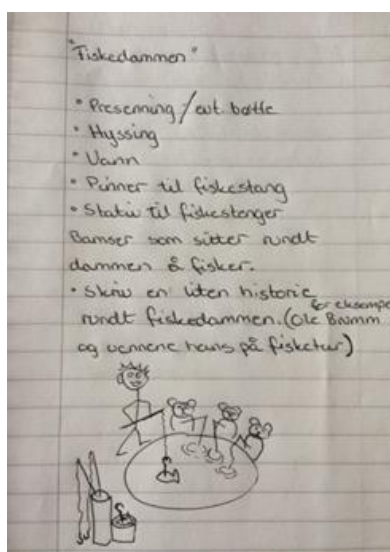 "Fiskedammen"
• Presenning/evt. bøtte
• Hyssing
• Vann
• Pinner til fiskestang
• Stativ til fiskestenger
Bamser som sitter rundt
dammen å fisker.
• Skriv en liten historie
rundt fiskedammen. (for eksempel Ole Brumm
og vennene hans på fisketur)